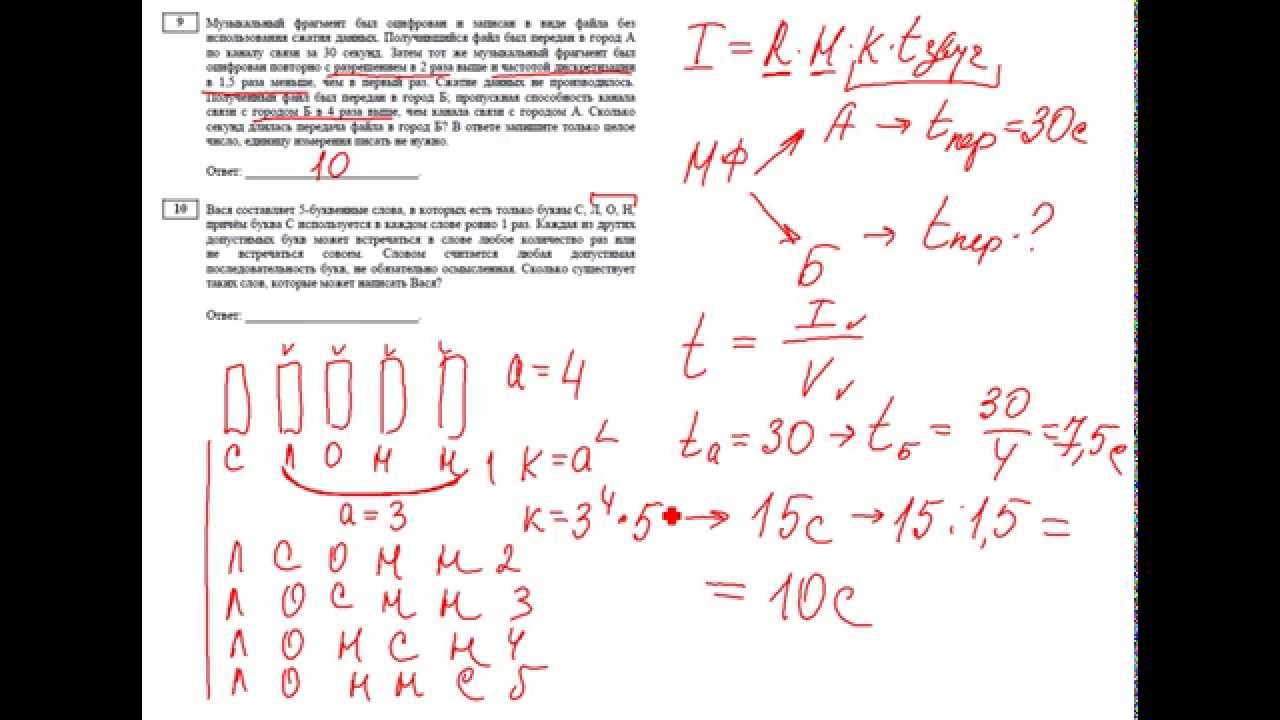 9
Музыкальный фрагмент был оцифрован и записан в виде файла без
использования сжатия данных. Получившийся файл был передан в город А
по каналу связи за 30 секунд. Затем тот же музыкальный фрагмент был
оцифрован повторно с разрешением в 2 раза выше и частотой дискретизации
в 1,5 раза меньше, чем в первый раз. Сжатие данных не производилось.
Полученный файл был передан в город Б; пропускная способность канала
связи с городом Б в 4 раза выше, чем канала связи с городом А. Сколько
секунд длилась передача файла в город Б? В ответе запишите только целое
число, единицу измерения писать не нужно.
Ответ: 10
10
Вася составляет 5-буквенные слова, в которых есть только буквы С, Л, О, Н,
причём буква С используется в каждом слове ровно 1 раз. Каждая из других
допустимых букв может встречаться в слове любое количество раз или
не встречаться совсем. Словом считается любая допустимая
последовательность букв, не обязательно осмысленная. Сколько существует
таких слов, которые может написать Вася?
Ответ:
a = 4
С Л О Н Н 1
K = a^L
a = 3
K = 3^4 · 5
Л С О Н Н 2
Л О С Н Н 3
Л О Н С Н 4
Л О Н Н С 5
I = R · M · K · t звуч
МФ
А → t пер = 30с
Б → t пер. ?
t = I / V
t a = 30 → t б = 30/4 = 7,5с
→ 15с → 15 : 1,5 =
= 10с